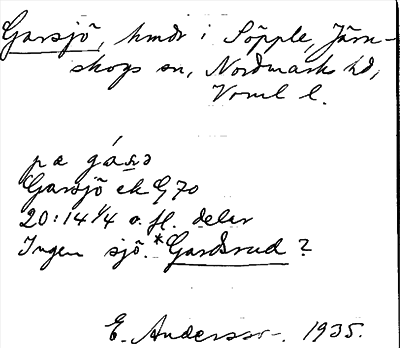 Garsjö, hmdr i Söpple, Järn-
skogs sn, Nordmarks hd,
Vrml l.
pæ gá
Garsjö ek G 70
20:14 1/4 o. fl. delar
Ingen sjö. *Gardsrud?
E. Andersson. 1935.